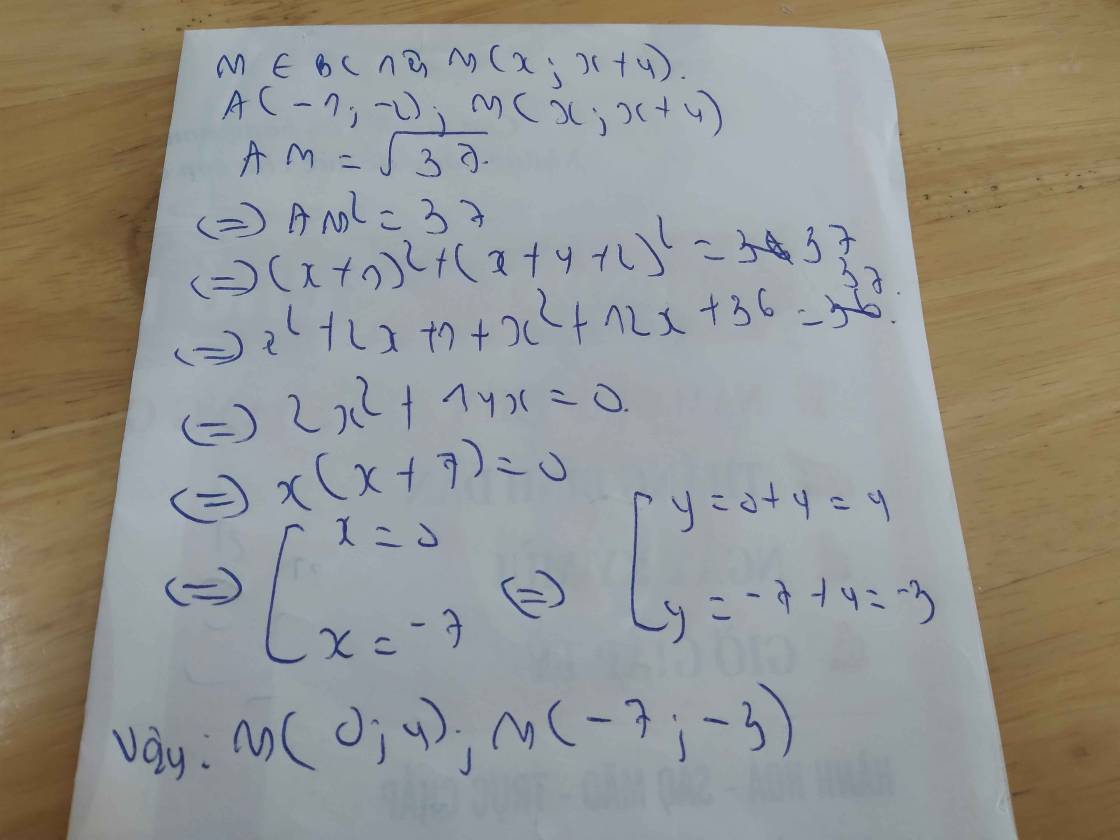 M ∈ BC nên M(x; x+4).
A(-1; -2); M(x; x+4)
AM = √37.
(=) AM² = 37
(=) (x+1)² + (x+4+2)² = 37
(=) x² + 2x + 1 + x² + 12x + 36 = 37.
(=) 2x² + 14x = 0.
(=) x(x+7) = 0
(=) [ x = 0 (=) [ y = 0+4 = 4
x = -7 y = -7+4 = -3
Vậy: M(0; 4); M(-7; -3)